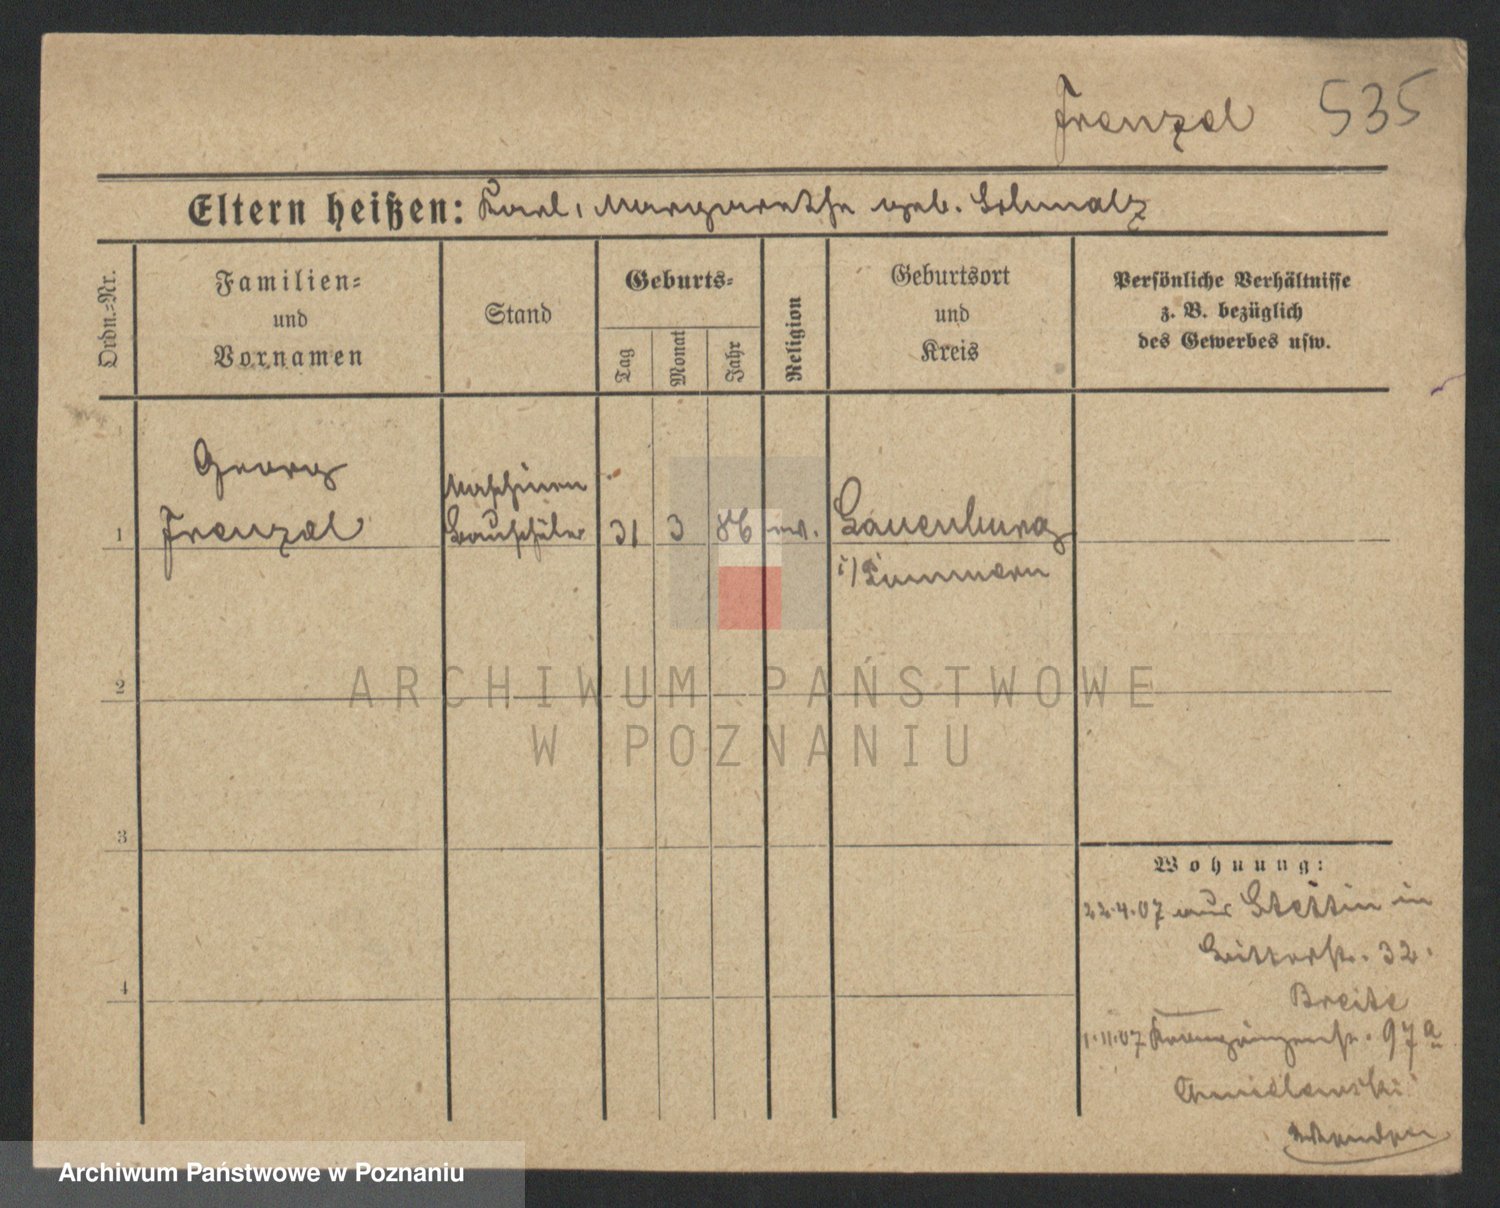 Frenzel 535
Eltern heißen: Karl, Margarethe geb. Schmalz
Ordn.-Nr.
Familien-
und
Vornamen
Stand
Geburts-
Tag
Monat
Jahr
Religion
Geburtsort
und
Kreis
Persönliche Verhältnisse
z. B. bezüglich
des Gewerbes usw.
1
Georg
Frenzel
Maschinen
Bauschüler
31
3
86
ev.
Lauenburg
i/Pommern
2
3
4
Wohnung:
22.4.07 aus Stettin in
Ritterstr. 32.
Breite
1.11.07 97a
ARCHIWUM PAŃSTWOWE
W POZNANIU
Archiwum Państwowe w Poznaniu